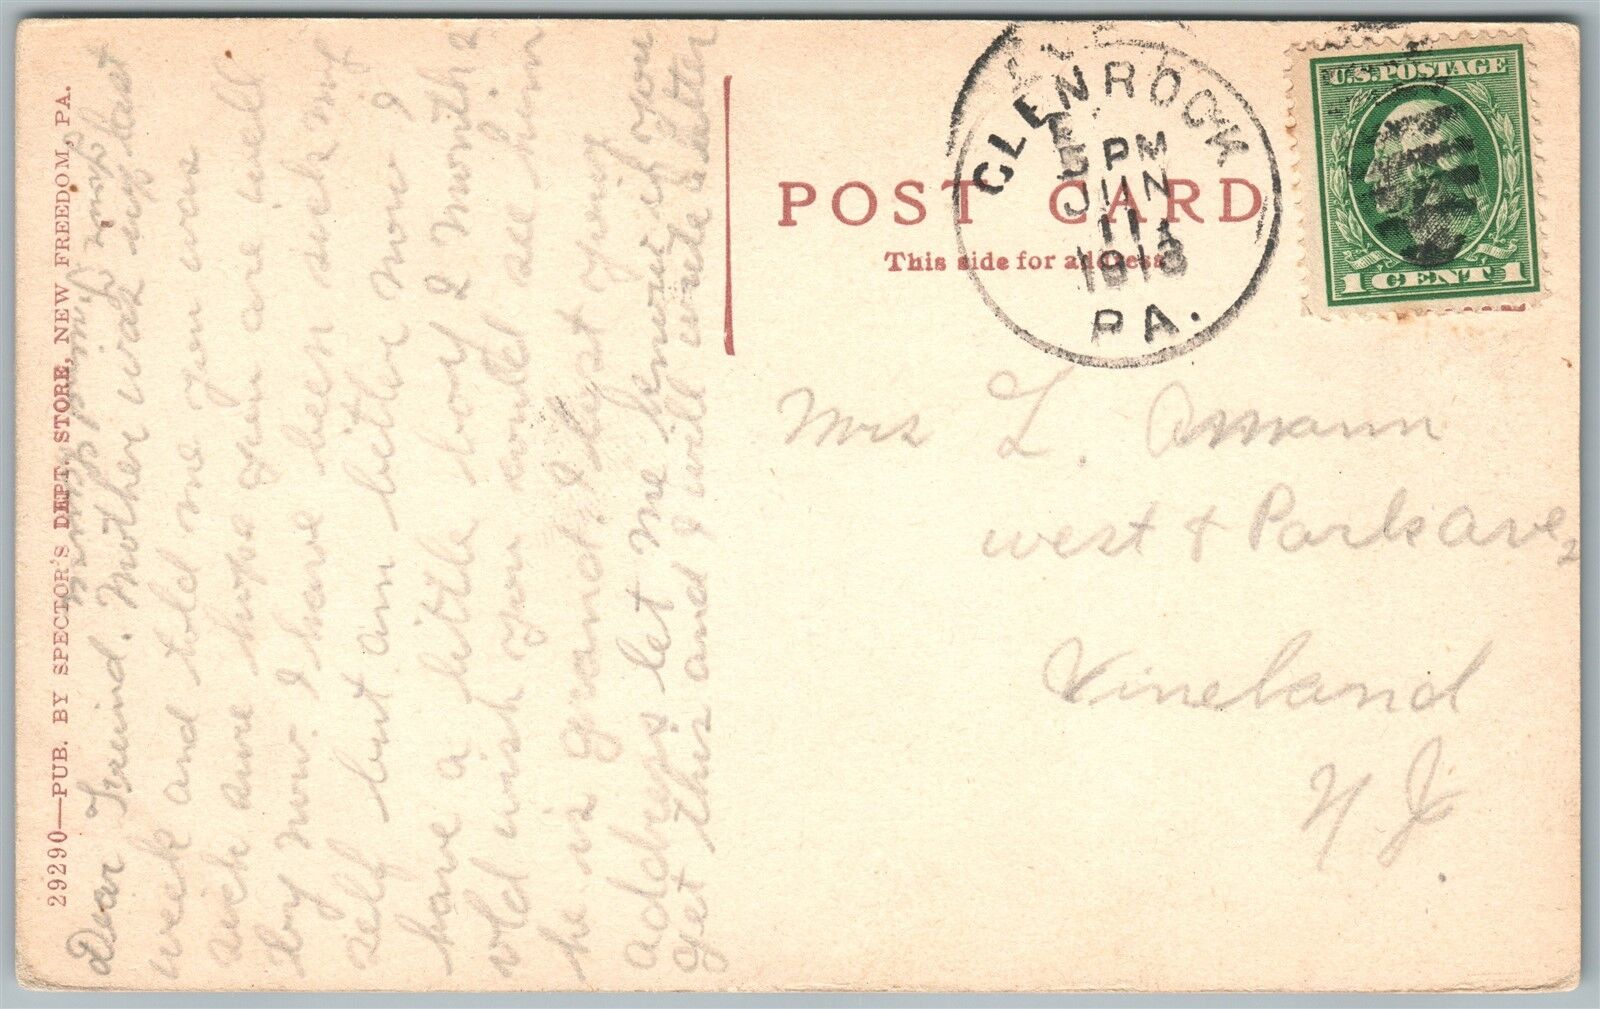 29290—PUB. BY SPECTOR'S DEPT. STORE, NEW FREEDOM, PA.
Dear Freind. Mother was up last
week and told me you was
sick sure hope you are well
by now. I have been sick my
self but am better now I
have a little boy 1 month 2
old wish you could see him
he is grand. I lost your
address let me know if you
get this and I will write a letter
GLENROCK
5 PM
JUN
11
1913
PA.
U.S. POSTAGE
1 CENT 1
POST CARD
This side for address
Mrs L.
West & Park Ave,
Vineland
N J.